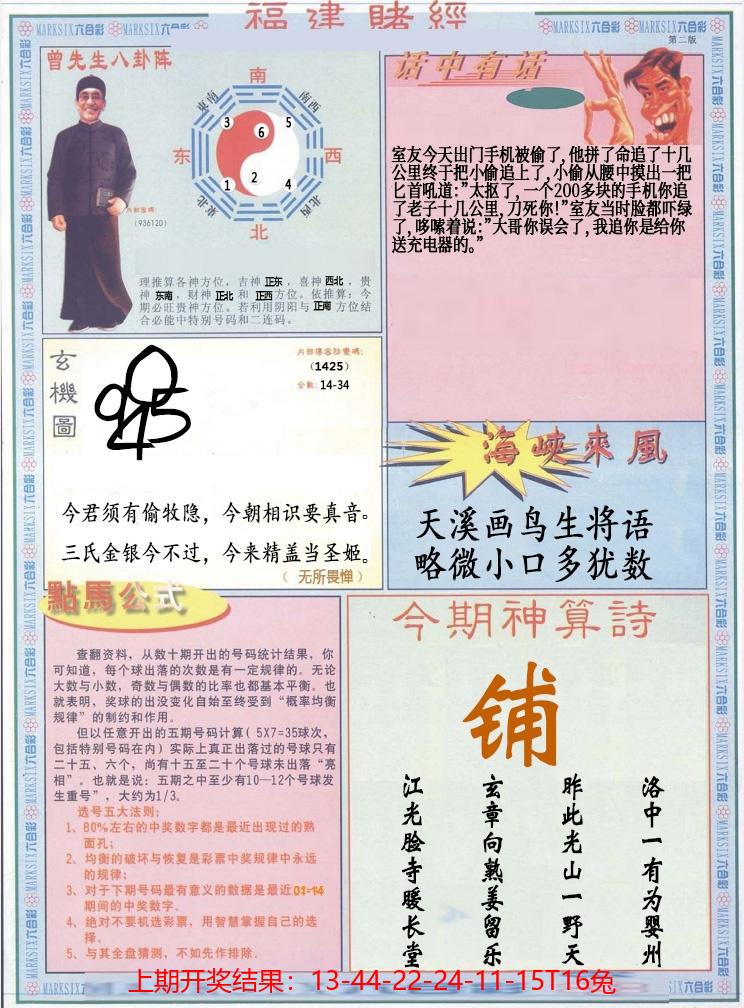 福建賭經
MARKSIX六合彩 MARKSIX六合彩 MARKSIX六合彩 MARKSIX六合彩
第二版
曾先生八卦阵
南
东南
南西
东
西
东北
北西
北
3
6
5
1
2
4
内部密碼:
(936120)
理推算各神方位，吉神 正东 ，喜神 西北 ，贵
神 东南 ，财神 正北 和 正西 方位。依推算：今
期必旺贵神方位。若利用阴阳与 正南 方位结
合必能中特别号码和二连码。
话中有话
室友今天出门手机被偷了,他拼了命追了十几
公里终于把小偷追上了,小偷从腰中摸出一把
匕首吼道:"太抠了,一个200多块的手机你追
了老子十几公里,刀死你!"室友当时脸都吓绿
了,哆嗦着说:"大哥你误会了,我追你是给你
送充电器的。"
玄機圖
(1425)
合數: 14-34
今君须有偷牧隐，今朝相识要真音。
三氏金银今不过，今来精盖当圣姬。
（ 无所畏惮 ）
海峽來風
天溪画鸟生将语
略微小口多犹数
點馬公式
查翻资料，从数十期开出的号码统计结果，你
可知道，每个球出落的次数是有一定规律的。无论
大数与小数，奇数与偶数的比率也都基本平衡。也
就表明，奖球的出没变化自始至终受到“概率均衡
规律”的制约和作用。
但以任意开出的五期号码计算( 5X7=35球次，
包括特别号码在内) 实际上真正出落过的号球只有
二十五、六个，尚有十五至二十个号球未出落“亮
相”。也就是说：五期之中至少有10—12个号球发
生重号”，大约为1/3。
选号五大法则：
1、80%左右的中奖数字都是最近出现过的熟
面孔；
2、均衡的破坏与恢复是彩票中奖规律中永远
的规律；
3、对于下期号码最有意义的数据是最近01=14
期间的中奖数字。
4、绝对不要机选彩票，用智慧掌握自己的选
择。
5、与其全盘猜测，不如先作排除．
今期神算詩
铺
洛中一有为婴州
昨此光山一野天
玄章向熟姜留乐
江光脸寺暖长堂
上期开奖结果：13-44-22-24-11-15T16兔